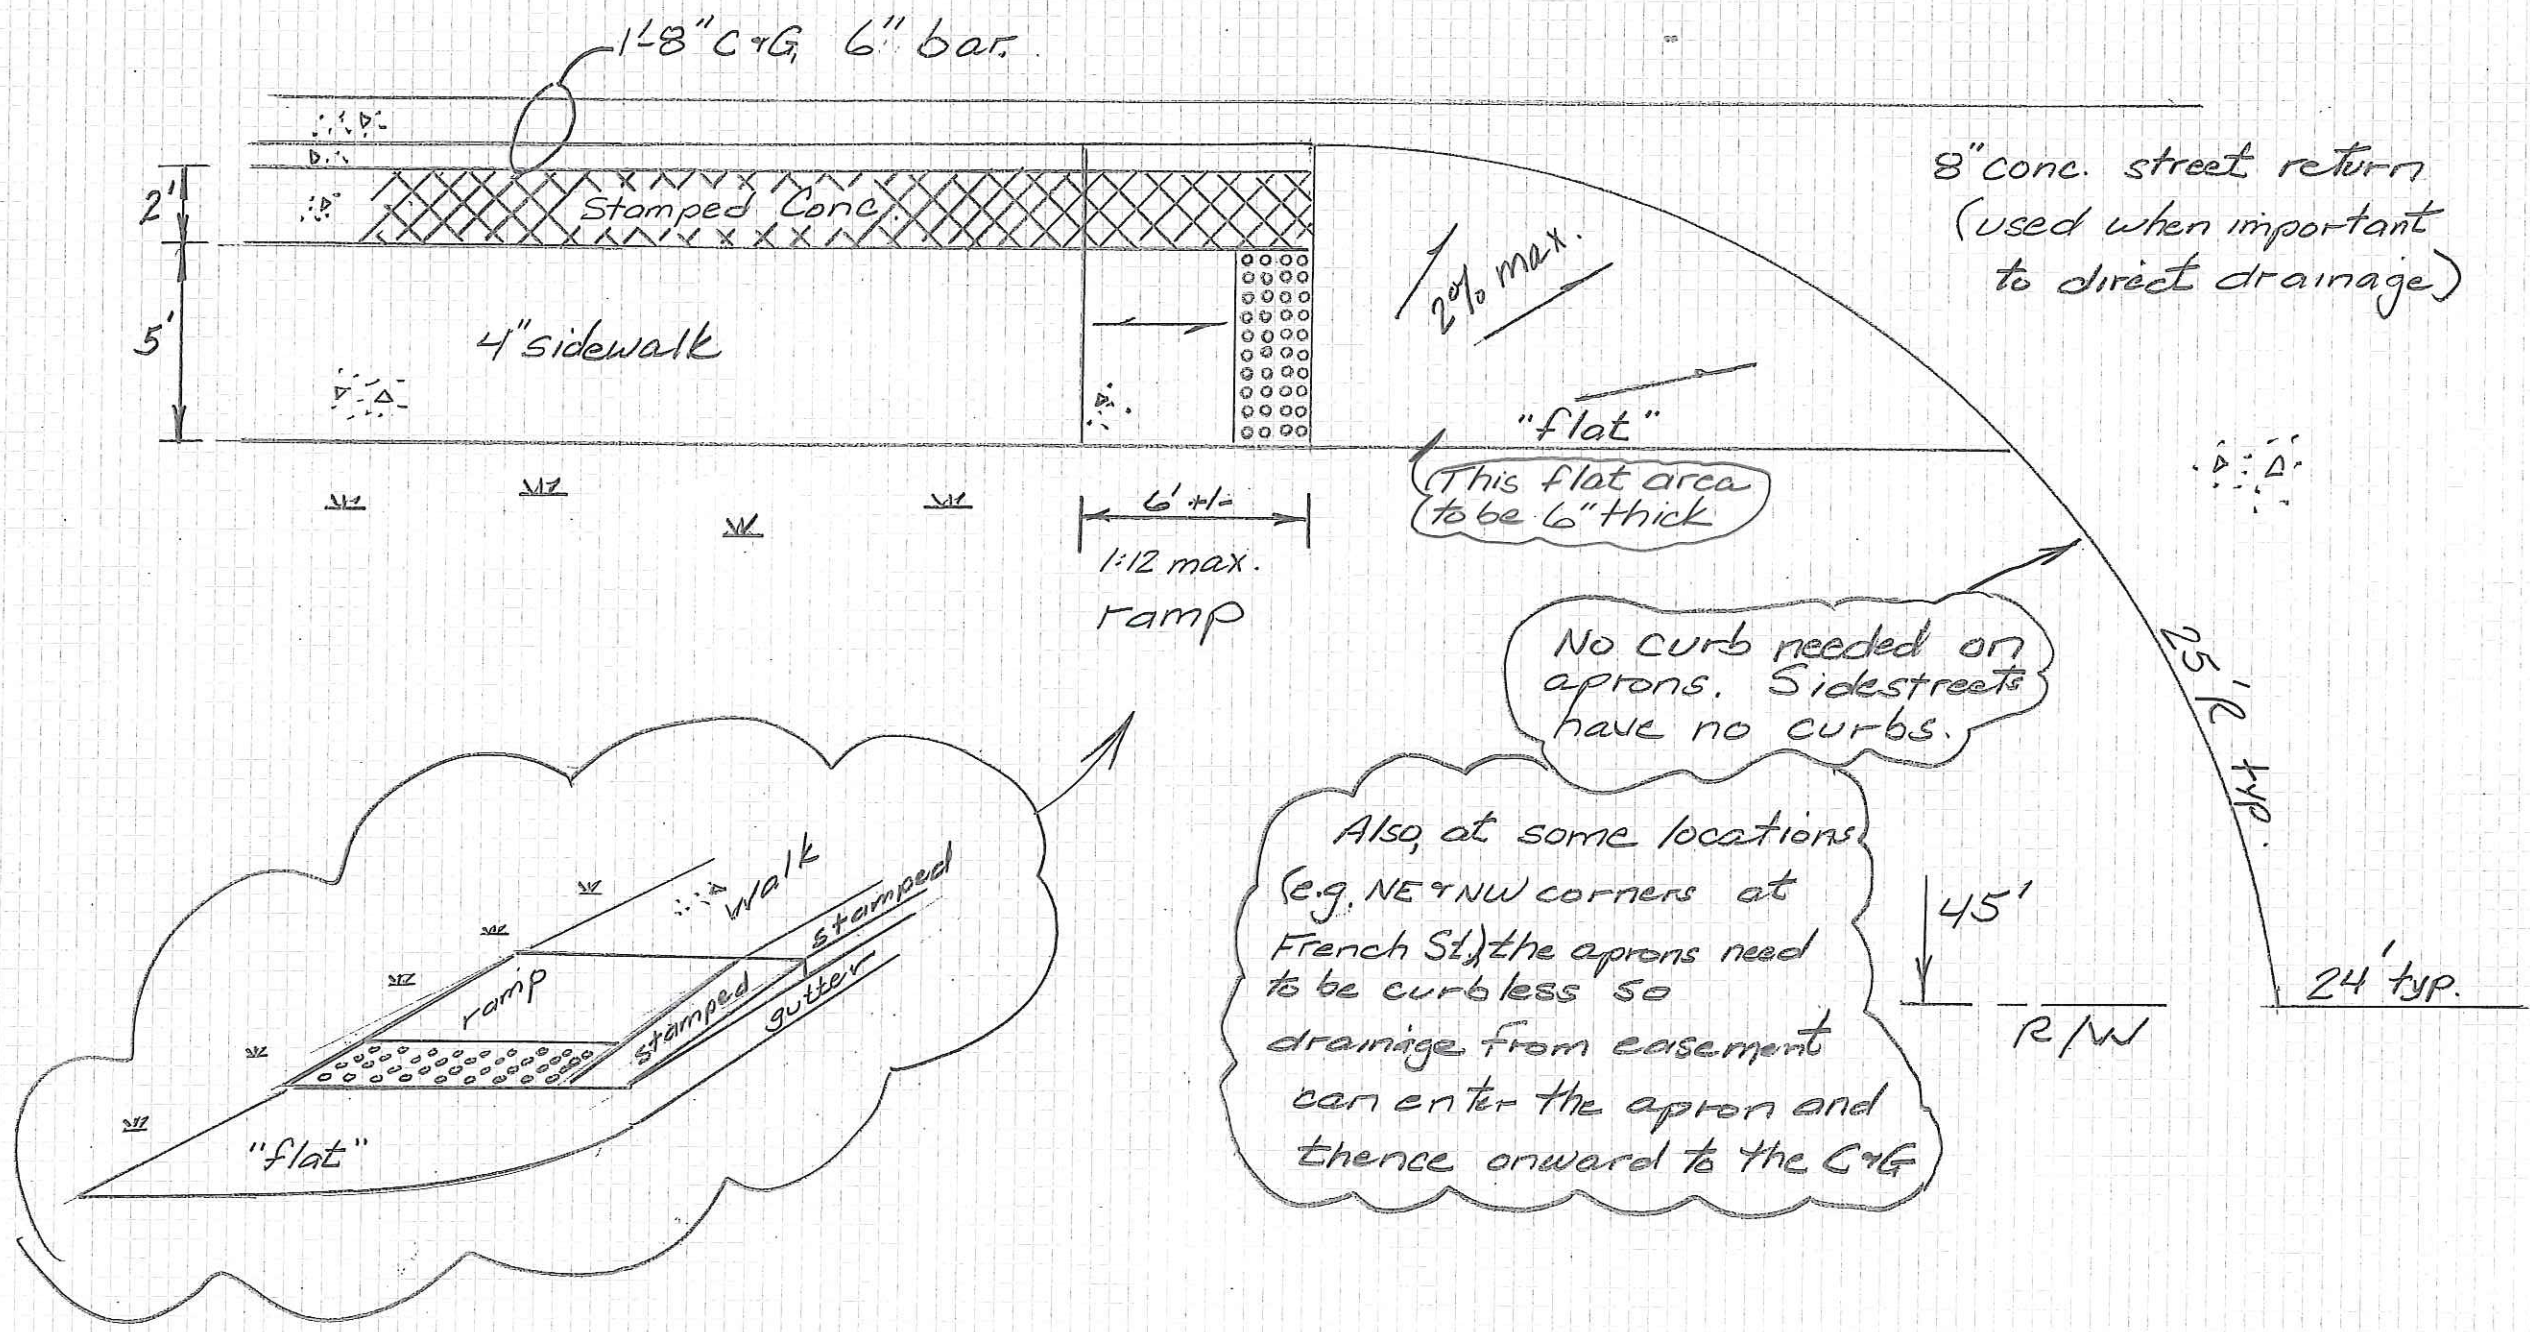 1'-8" C&G, 6" bar.
8" conc. street return
(used when important
to direct drainage)
2'
Stamped Conc.
2% max.
5'
4" sidewalk
"flat"
This flat area
to be 6" thick
6' +/-
1:12 max.
ramp
No curb needed on
aprons. Sidestreets
have no curbs.
25'R typ.
Also, at some locations
(e.g. NE & NW corners at
French St.) the aprons need
to be curbless so
drainage from easement
can enter the apron and
thence onward to the C&G
45'
R/W
24' typ.
walk
stamped
ramp
stamped
gutter
"flat"